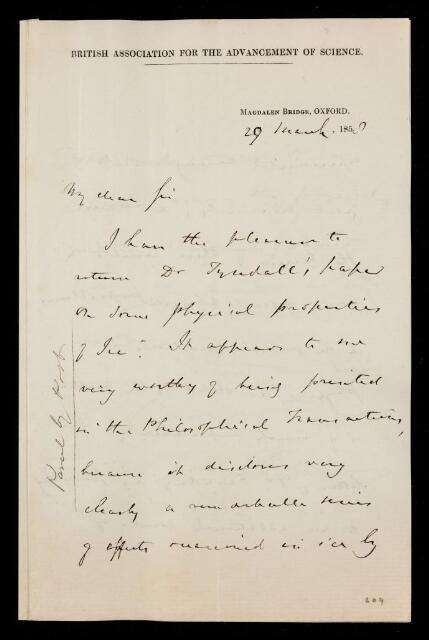 BRITISH ASSOCIATION FOR THE ADVANCEMENT OF SCIENCE.
MAGDALEN BRIDGE, OXFORD.
29 March 1858
My dear Sir
I have the pleasure to
return Dr Tyndall's paper
On Some physical properties
of Ice". It appears to me
very worthy of being printed
in the Philosophical Transactions,
because it discloses very
clearly a remarkable series
of effects occasioned in ice by
Parcel by Post
209